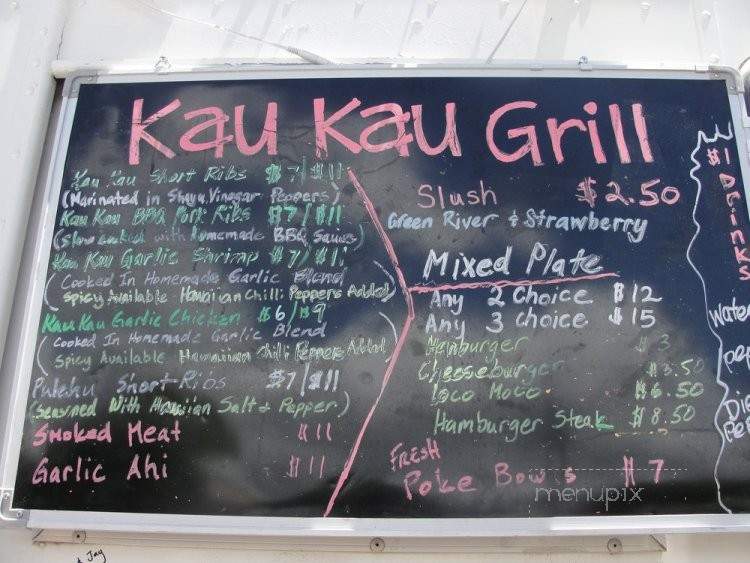 Kau Kau Grill
Kau Kau Short Ribs $7/$11
(Marinated in Shoyu, Vinegar Peppers)
Kau Kau BBQ Pork Ribs $7/$11
(Slow cooked with Homemade BBQ Sauces)
Kau Kau Garlic Shrimp $7/$11
(Cooked In Homemade Garlic Blend
Spicy Available Hawaiian Chilli Peppers Added)
Kau Kau Garlic Chicken $6/$9
(Cooked In Homemade Garlic Blend
Spicy Available Hawaiian Chilli Peppers Added)
Pulehu Short Ribs $7/$11
(Seasoned With Hawaiian Salt & Pepper)
Smoked Meat $11
Garlic Ahi $11
Slush $2.50
Green River & Strawberry
Mixed Plate
Any 2 Choice $12
Any 3 Choice $15
Hamburger $3
Cheeseburger $3.50
Loco Moco $6.50
Hamburger Steak $8.50
FRESH
Poke Bowls $7
$1 Drinks
Water
Pep
Die
Pep
menupix
Jay